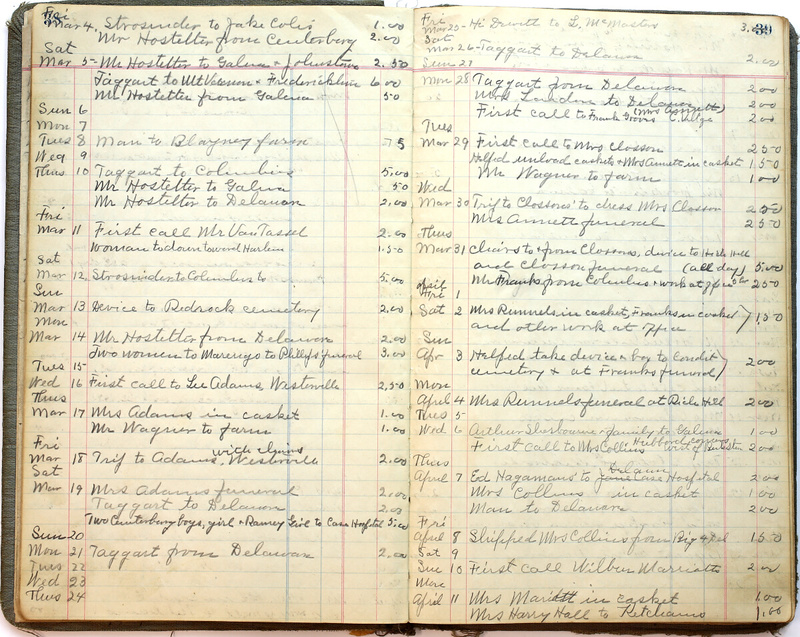 Fri
Mar 4. Strosnider to Jake Colis 1.00
Mr Hostetter from Centerburg 2.00
Sat
Mar 5- Mr Hostetter to Galena & Johnstown 2.50
Taggart to Mt Vernon & Fredericktown 6.00
Mr Hostetter from Galena 50
Sun 6
Mon 7
Tues 8 Man to Blayney farm 75
Wed 9
Thus 10 Taggart to Columbus 5.00
Mr Hostetter to Galena .50
Mr Hostetter to Delawan 2.00
Fri
Mar 11 First call Mr Van Tassel 2.00
Woman to down toward Harlem 1.50
Sat
Mar 12. Strosnider to Columbus 5.00
Sun
Mar 13 Device to Redrock cemetery 2.00
Mon
Mar 14 Mr Hostetter from Delawan 2.00
Two women to Marengo to Phillips funeral 3.00
Tues 15
Wed 16 First call to Lee Adams, Westerville 2.50
Thus
Mar 17 Mrs Adams in casket 1.00
Mr Wagner to farm 1.00
Fri
Mar 18 Trip to Adams, with chairs Westerville 2.00
Sat
Mar 19 Mrs Adams funeral 2.00
Taggart to Delawan 2.00
Two Centerburg boys, girl & Ramey Girl to Case Hospital 5.00
Sun 20
Mon 21 Taggart from Delawan 2.00
Tues 22
Wed 23
Thus 24
39
Fri
Mar 25- Hi Drewth to L. McMaster 3.
Sat
Mar 26- Taggart to Delawan 2.00
Sun 27
Mon 28 Taggart from Delawan 2.00
Mrs Landon to Delawan 2.00
First call to Frank Grove (Mrs Annett) C. Ridge 2.00
Tues
Mar 29 First call to Mrs Closson 2.50
Helped unload caskets & Mrs Annett in casket 1.50
Mr Wagner to farm 1.00
Wed
Mar 30 Trip to Clossons to dress Mrs Closson 2.50
Mrs Annett funeral 2.50
Thus
Mar 31 Chairs to & from Clossons, device to Rich Hill
and Closson funeral (all day) 5.00
Mr Franks from Columbus & work at office 2.50
April
Fri 1
Sat 2 Mrs Runnels in casket, Franks in casket
and other work at office 1.50
Sun
Apr 3 Helped take device & boy to Condit
cemetery & at Franks funeral 2.00
Mon
April 4 Mrs Runnels funeral at Rich Hill 2.00
Tues 5
Wed 6 Arthur Sherbourne & family to Galena 1.00
First call to Mrs Collins 2.00
Thus
April 7 Ed Hagamans to Jane Case Hospital 2.00
Mrs Collins in casket 1.00
Man to Delawan 2.00
Fri
April 8 Shipped Mrs Collins from Big 4 1.50
Sat 9
Sun 10 First call Wilbur Marriott 2.00
Mon
April 11 Mrs Mariott in casket 1.00
Mrs Harry Hall to Ketchams 1.00